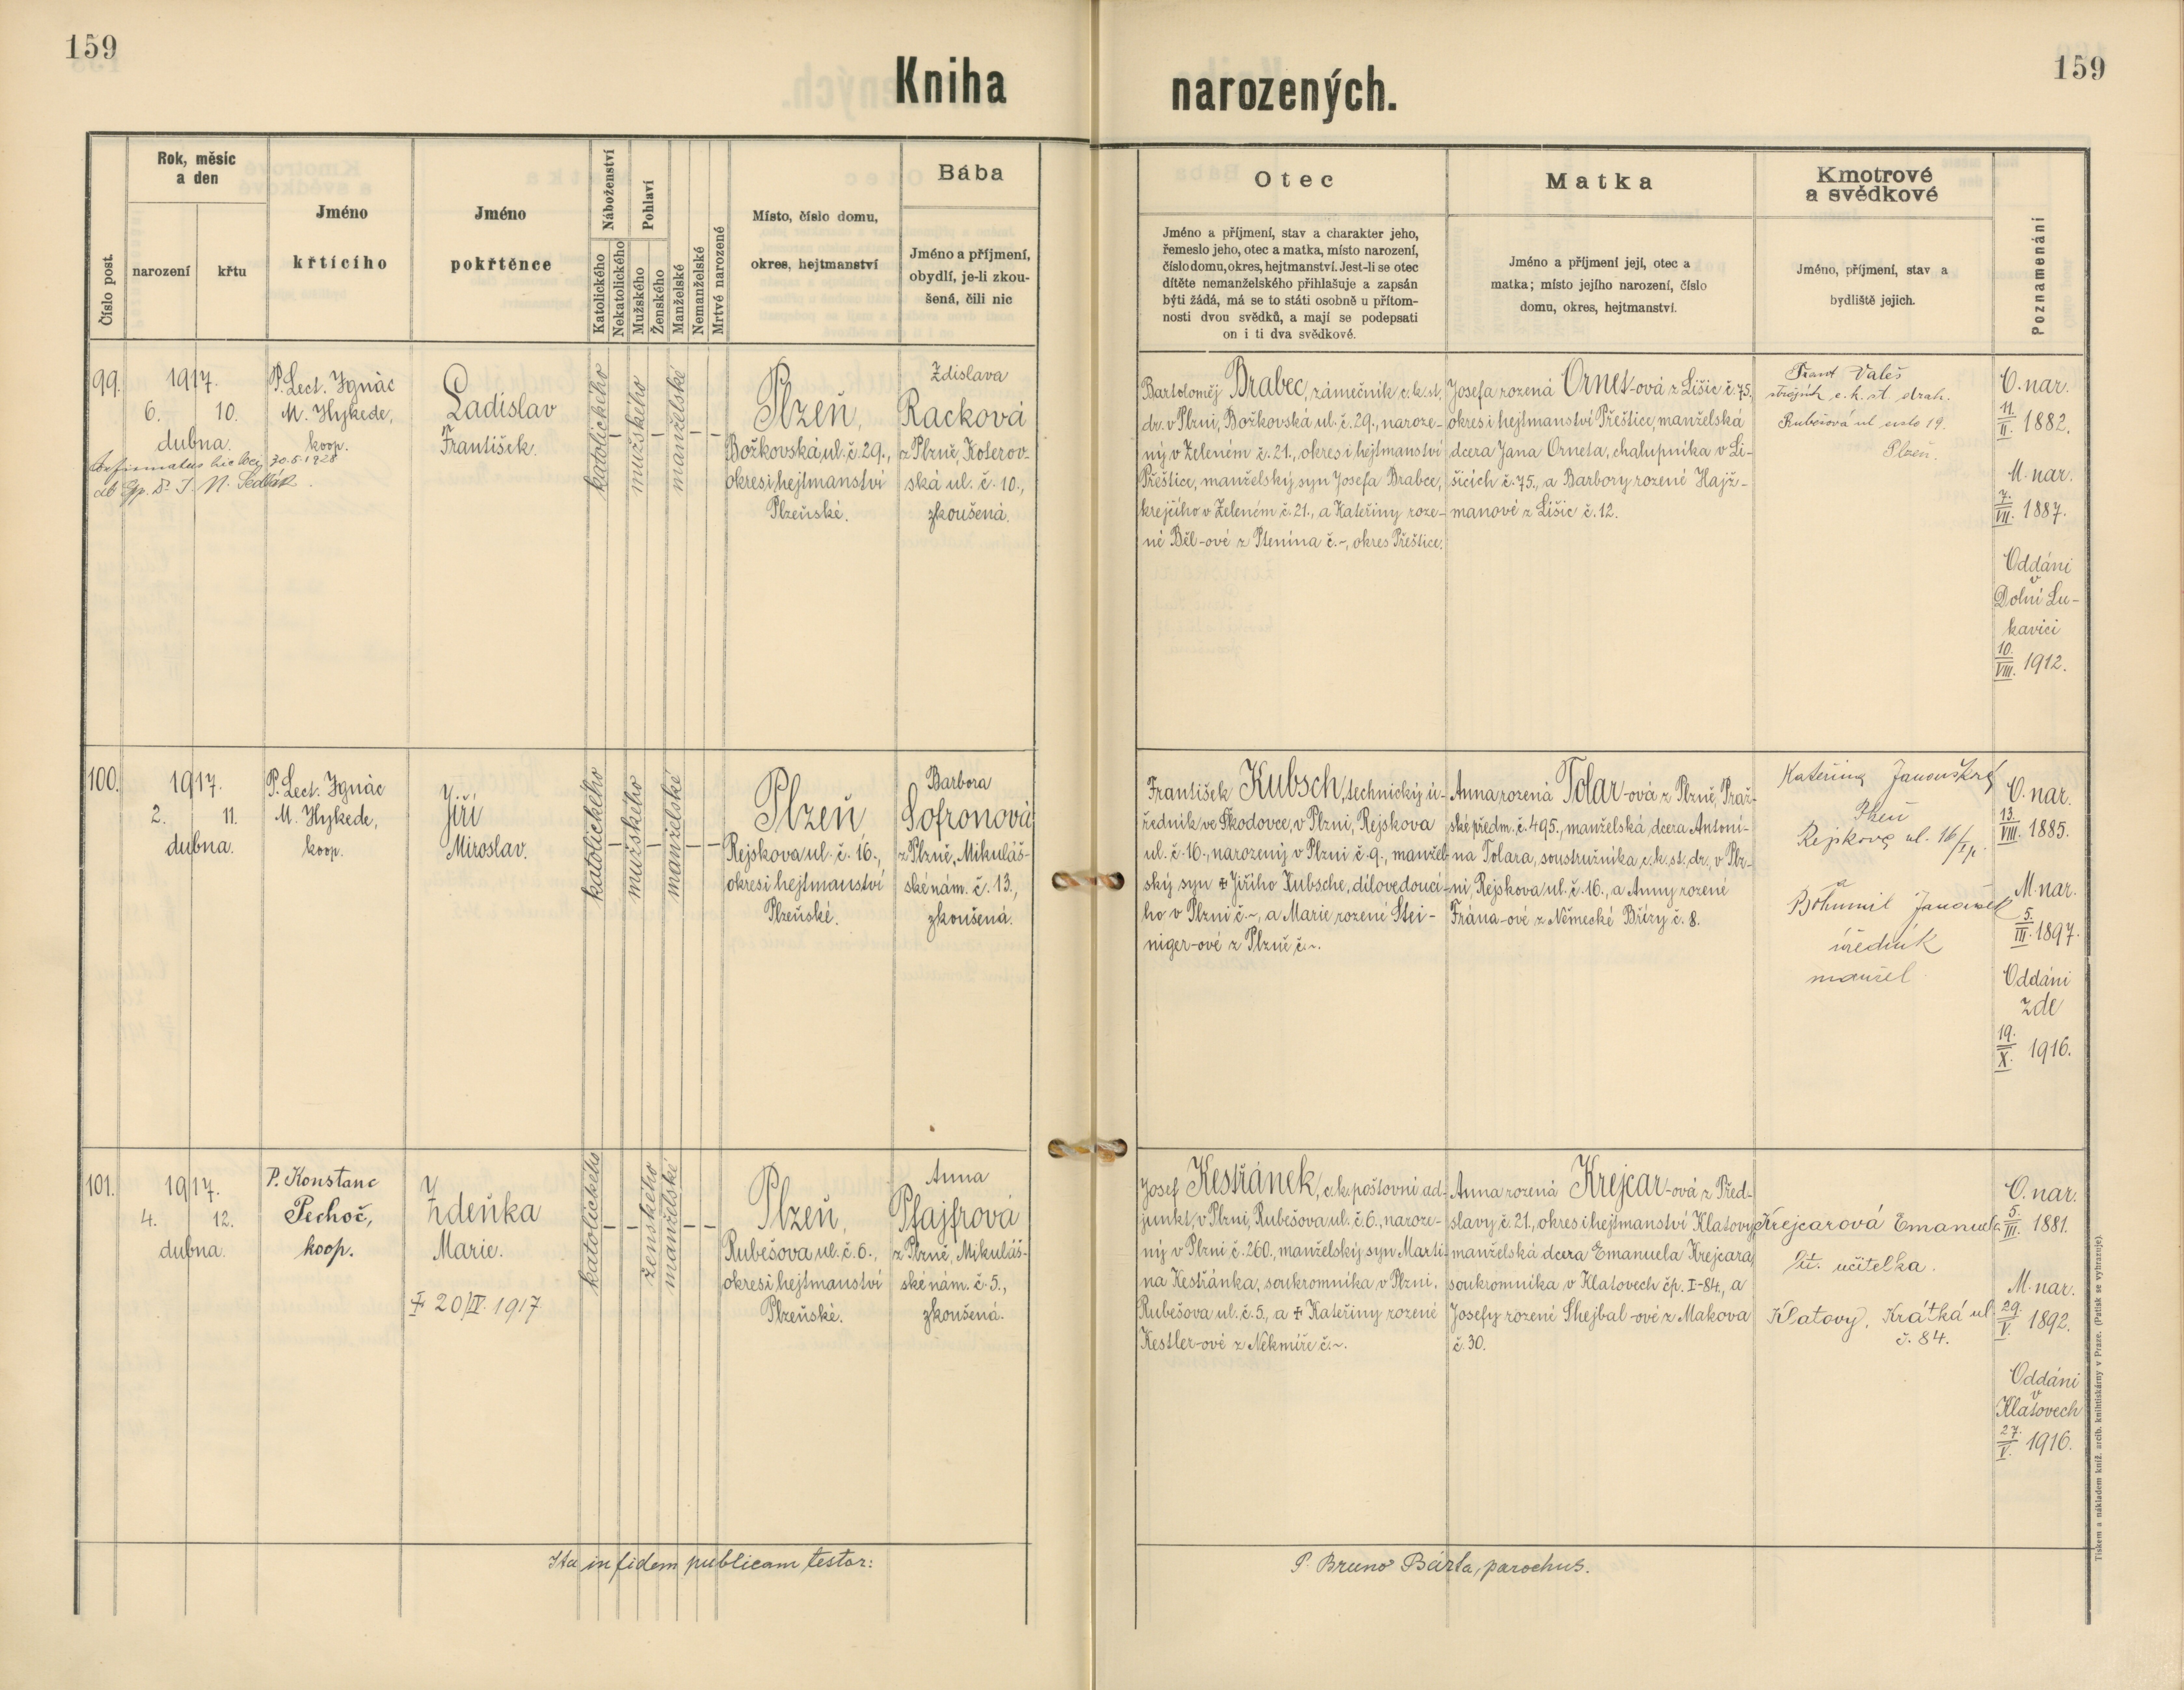 159
Kniha
narozených.
159
Číslo post.
Rok, měsíc
a den
narození
křtu
Jméno
křtícího
Jméno
pokřtěnce
Náboženství
Katolického
Nekatolického
Pohlaví
Mužského
Ženského
Manželské
Nemanželské
Mrtvé narozené
Místo, číslo domu,
okres, hejtmanství
Bába
Jméno a příjmení,
obydlí, je-li zkou-
šená, čili nic
Otec
Jméno a příjmení, stav a charakter jeho,
řemeslo jeho, otec a matka, místo narození,
číslo domu, okres, hejtmanství. Jest-li se otec
dítěte nemanželského přihlašuje a zapsán
býti žádá, má se to státi osobně u přítom-
nosti dvou svědků, a mají se podepsati
on i ti dva svědkové.
Matka
Jméno a příjmení její, otec a
matka; místo jejího narození, číslo
domu, okres, hejtmanství.
Kmotrové
a svědkové
Jméno, příjmení, stav a
bydliště jejich.
Poznamenání
99.
1917.
6. 10.
dubna.
30.5.1928
Sedlák.
P. Lect. Ignác
M. Hykede,
koop.
Ladislav
František.
katolického
–
mužského
–
manželské
– –
Plzeň,
Božkovská ul. č. 29.,
okres i hejtmanství
Plzeňské.
Zdislava
Racková
z Plzně, Koterov-
ská ul. č. 10.,
zkoušená.
Bartoloměj Brabec, zámečník c.k.st.
dr. v Plzni, Božkovská ul. č. 29., naroze-
ný v Zeleném č. 21., okres i hejtmanství
Přeštice, manželský syn Josefa Brabce,
krejčího v Zeleném č. 21., a Kateřiny roze-
né Běl-ové z Ptenína č. ~, okres Přeštice.
Josefa rozená Ornet-ová z Lišic č. 75.
okres i hejtmanství Přeštice, manželská
dcera Jana Orneta, chalupníka v Li-
šicích č. 75., a Barbory rozené Hajž-
manové z Lišic č. 12.
Frant Valeš
c. k. st. drah.
Rubešova ul číslo 19.
Plzeň.
O. nar.
11./II. 1882.
M. nar.
7./VII. 1887.
Oddáni
v
Dolní Lu-
kavici
10./VIII. 1912.
100.
1917.
2. 11.
dubna.
P. Lect. Ignác
M. Hykede,
koop.
Jiří
Miroslav.
katolického
–
mužského
–
manželské
– –
Plzeň
Rejskova ul. č. 16.,
okres i hejtmanství
Plzeňské.
Barbora
Sofronová
z Plzně, Mikuláš-
ské nám. č. 13.,
zkoušená.
František Kubsch, technický ú-
ředník ve Škodovce, v Plzni, Rejskova
ul. č. 16., narozený v Plzni č. 9., manžel-
ský syn ‡ Jiřího Kubsche, dílovedoucí-
ho v Plzni č. ~, a Marie rozené Stei-
niger-ové z Plzně, č. ~.
Anna rozená Tolar-ová z Plzně, Praž-
ské předm. č. 495., manželská dcera Antoní-
na Tolara, soustružníka c.k.st.dr., v Plz-
ni, Rejskova ul. č. 16., a Anny rozené
Frána-ové z Německé Břízy č. 8.
Kateřina
Plzeň
Rejskova ul. 16/
a
Bohumil Janoušek
úředník
manžel
O. nar.
13./VIII. 1885.
M. nar.
5./III. 1897.
Oddáni
zde
19./X. 1916.
101.
1917.
4. 12.
dubna.
P. Konstanc
Pechoč,
koop.
Zdeňka
Marie.
‡ 20/IV. 1917
katolického
– –
ženského
manželské
– –
Plzeň,
Rubešova ul. č. 6.,
okres i hejtmanství
Plzeňské.
Anna
Pfajfrová
z Plzně, Mikuláš-
ské nám. č. 5.,
zkoušená.
Josef Kestřánek, c.k. poštovní ad-
junkt, v Plzni, Rubešova ul. č. 6., naroze-
ný v Plzni č. 260., manželský syn Marti-
na Kestřánka, soukromníka v Plzni,
Rubešova ul. č. 5., a ‡ Kateřiny rozené
Kestler-ové z Nekmíře č. ~.
Anna rozená Krejcar-ová z Před-
slavy č. 21., okres i hejtmanství Klatovy,
manželská dcera Emanuela Krejcara,
soukromníka v Klatovech čp. I-84., a
Josefy rozené Shejbal-ové z Makova
č. 30.
Krejcarová Emanuela
lit. učitelka.
Klatovy, Krátká ul
č. 84.
O. nar.
5./III. 1881.
M. nar.
29./V. 1892.
Oddáni
v
Klatovech
27./V. 1916.
Ita in fidem publicam testor:
P. Bruno Bárta, parochus.
Tiskem a nákladem kníž. arcib. knihtiskárny v Praze. (Patisk se vyhrazuje).